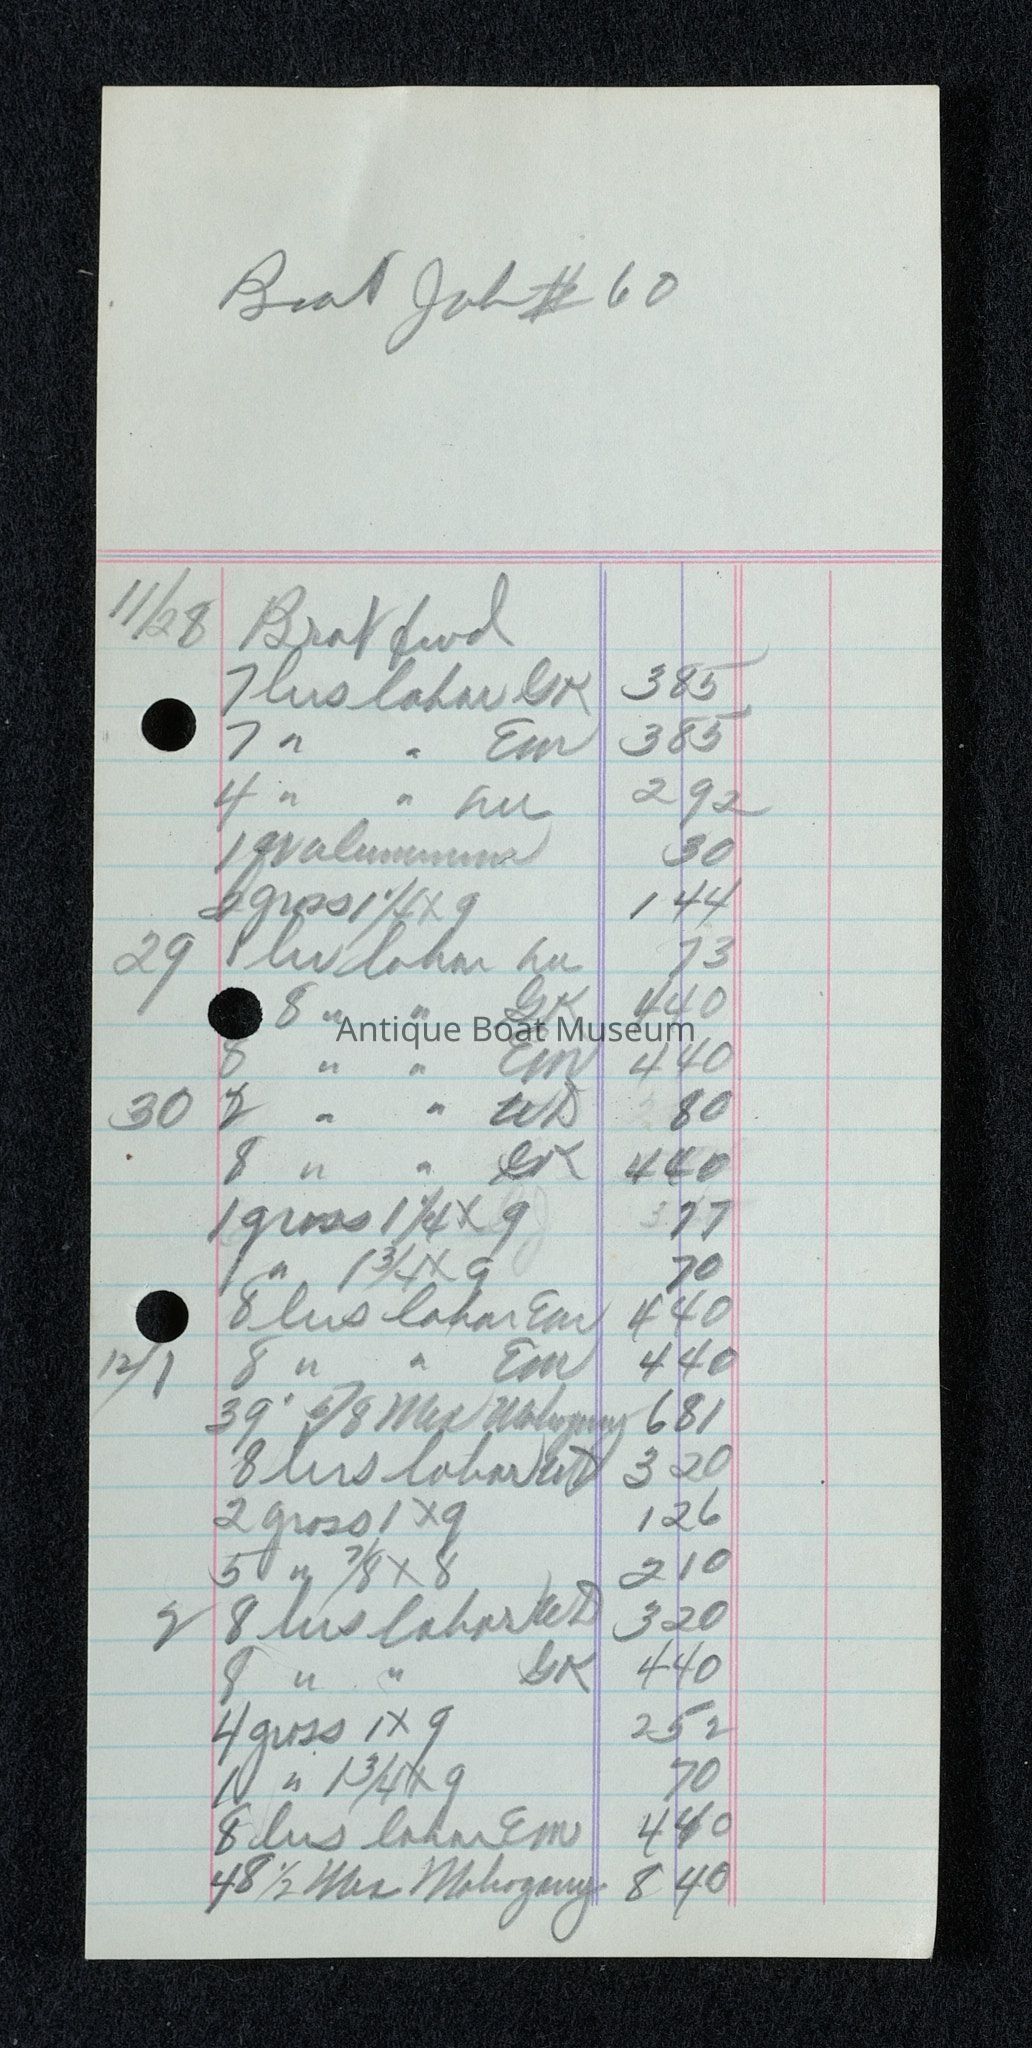 Boat Job # 60
11/28 Brot fwd
7 hrs labor GK 385
7 " " Em 385
4 " " Hu 292
1 qr aluminum 30
2 gross 1 1/4 X 9 144
29 1 hr labor Hu 73
8 " " GK 440
Antique Boat Museum
8 " " Em 440
30 2 " " WD 80
8 " " GK 440
1 gross 1 1/4 X 9 77
1 " 1 3/4 X 9 70
8 hrs labor Em 440
12/1 8 " " Em 440
39' 5/8 Mex Mahogany 681
8 hrs labor WD 320
2 gross 1 X 9 126
5 " 7/8 X 8 210
2 8 hrs labor WD 320
8 " " GK 440
4 gross 1 X 9 252
1 " 1 3/4 X 9 70
8 hrs labor Em 440
48 1/2 Mex Mahogany 840